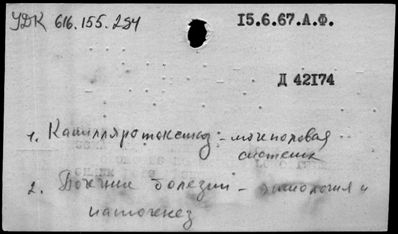 УДК 616.155.294
15.6.67.А.Ф.
Д 42174
1. Капилляротоксикоз - мочеполовая
система
2. Почечные болезни - этиология и
патогенез